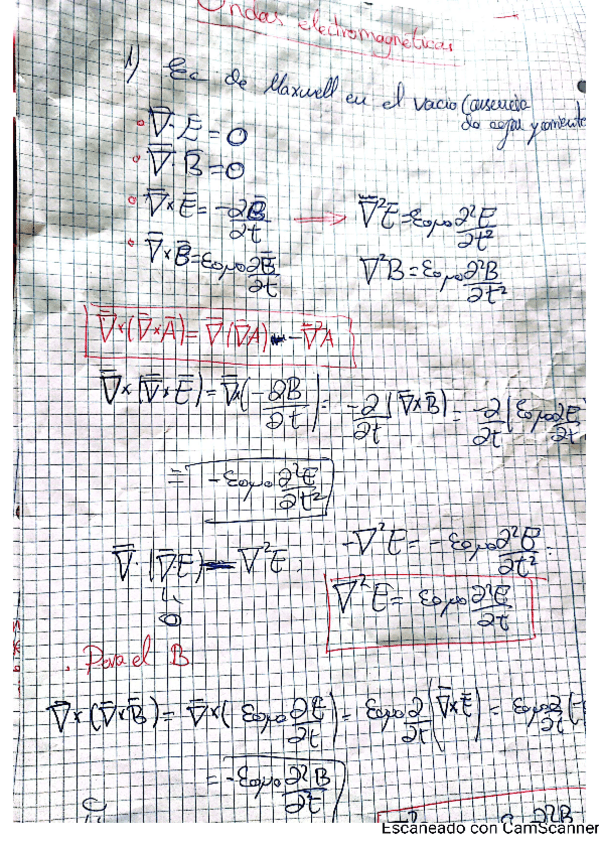 Ondas electromagneticas
1) Ec de Maxwell en el vacio (ausencia de carga y corriente
∇̄·Ē = 0
∇̄ B̄ = 0
∇̄×Ē = -∂B̄/∂t → ∇̄²Ē = ε₀μ₀ ∂²E/∂t²
∇̄×B̄ = ε₀μ₀ ∂B̄/∂t ∇²B = ε₀μ₀ ∂²B/∂t²
∇̄×(∇̄×A) = ∇̄(∇̄A) - -∇̄²A
∇̄×(∇̄×Ē) = ∇̄×(-∂B/∂t) = -∂/∂t (∇̄×B̄) = -∂/∂t (ε₀μ₀ ∂E/∂t
= -ε₀μ₀ ∂²E/∂t²
∇̄·(∇̄·E) - ∇²E. -∇²E = -ε₀μ₀ ∂²E/∂t² :
0
∇²E = ε₀μ₀ ∂²E/∂t
. Para el B
∇̄×(∇̄×B̄) = ∇̄×(ε₀μ₀ ∂E/∂t) = ε₀μ₀ ∂/∂t (∇̄×Ē) = ε₀μ₀ ∂/∂t (
= -ε₀μ₀ ∂²B/∂²t
∂²B
Escaneado con CamScanner